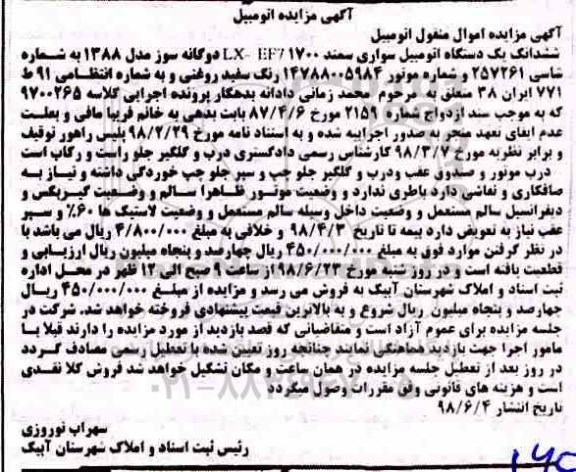 آگهی مزایده اتومبیل
آگهی مزایده اموال منقول اتومبیل
ششدانگ یک دستگاه اتومبیل سواری سمند LX- EF7 1700 دوگانه سوز مدل ۱۳۸۸ به شماره
شاسی ۲۵۷۲۶۱ و شماره موتور ۱۴۷۸۸۰۰۵۹۸۴ رنگ سفید روغنی و به شماره انتظامی ۹۱ ط
۷۷۱ ایران ۳۸ متعلق به مرحوم محمد زمانی دادانه بدهکار پرونده اجرایی کلاسه ۹۷۰۰۲۶۵
که به موجب سند ازدواج شماره ۲۱۵۹ مورخ ۸۷/۴/۶ بابت بدهی به خانم فریبا مافی و بعلت
عدم ایفای تعهد منجر به صدور اجراییه شده و به استناد نامه مورخ ۹۸/۲/۲۹ پلیس راهور توقیف
و برابر نظریه مورخ ۹۸/۳/۷ کارشناس رسمی دادگستری درب و گلگیر جلو راست و رکاب است
درب موتور و صندوق عقب ودرب و گلگیر جلو چپ و سپر جلو چپ خوردگی داشته و نیاز به
صافکاری و نقاشی دارد باطری ندارد و وضعیت موتور ظاهرا سالم و وضعیت گیربکس و
دیفرانسیل سالم مستعمل و وضعیت داخل وسیله سالم مستعمل و وضعیت لاستیک ها ۶۰٪ و سپر
عقب نیاز به تعویض دارد بیمه تا تاریخ ۹۸/۴/۳ و خلافی به مبلغ ۴/۸۰۰/۰۰۰ ریال می باشد با
در نظر گرفتن موارد فوق به مبلغ ۴۵۰/۰۰۰/۰۰۰ ریال چهارصد و پنجاه میلیون ریال ارزیابی و
قطعیت یافته است و در روز شنبه مورخ ۹۸/۶/۲۳ از ساعت ۹ صبح الی ۱۲ ظهر در محل اداره
ثبت اسناد و املاک شهرستان آبیک به فروش می رسد و مزایده از مبلغ ۴۵۰/۰۰۰/۰۰۰ ریال
چهارصد و پنجاه میلیون ریال شروع و به بالاترین قیمت پیشنهادی فروخته خواهد شد. شرکت در
جلسه مزایده برای عموم آزاد است و متقاضیانی که قصد بازدید از مورد مزایده را دارند قبلا با
مامور اجرا جهت بازدید هماهنگی نمایند چنانچه روز تعیین شده با تعطیل رسمی مصادف گردد
در روز بعد از تعطیل جلسه مزایده در همان ساعت و مکان تشکیل خواهد شد فروش کلا نقدی
است و هزینه های قانونی وفق مقررات وصول میگردد
تاریخ انتشار ۹۸/۶/۴
سهراب نوروزی
رئیس ثبت اسناد و املاک شهرستان آبیک